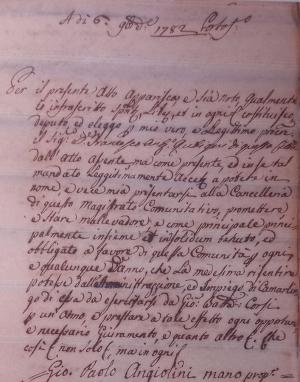 A di 6. 9bre 1782 Portof.o
Per il presente Atto Apparisca, e sia noto, qualmente
Io infrascritto
deputo, ed eleggo p mio vero, e Legittimo
il Sig.r Francesco
dall'atto assente, ma come presente, ed in se tal
mandato Legittimamente a potere in
nome, e vece mia presentarsi alla Cancelleria
di questo Magistrato Comunitativo, promettere
e stare mallevadore, e come principale princi-
palmente insieme, et insolidum tenuto, ed
obbligato a favore di questa Comunità p
e qualunque Danno, che La medesima risentire
potesse dall' Amministrazione, ed Impiego di Camarlin-
go di essa da esercitarsi da Gio: Corsi
p un' Anno, e prestare a tale effetto ogni opportuno,
e necessario Giuramento, e quanto altro &c. che
così &c. non solo &c. ma in ogni &c.
Gio. Paolo Angiolini mano prop.a